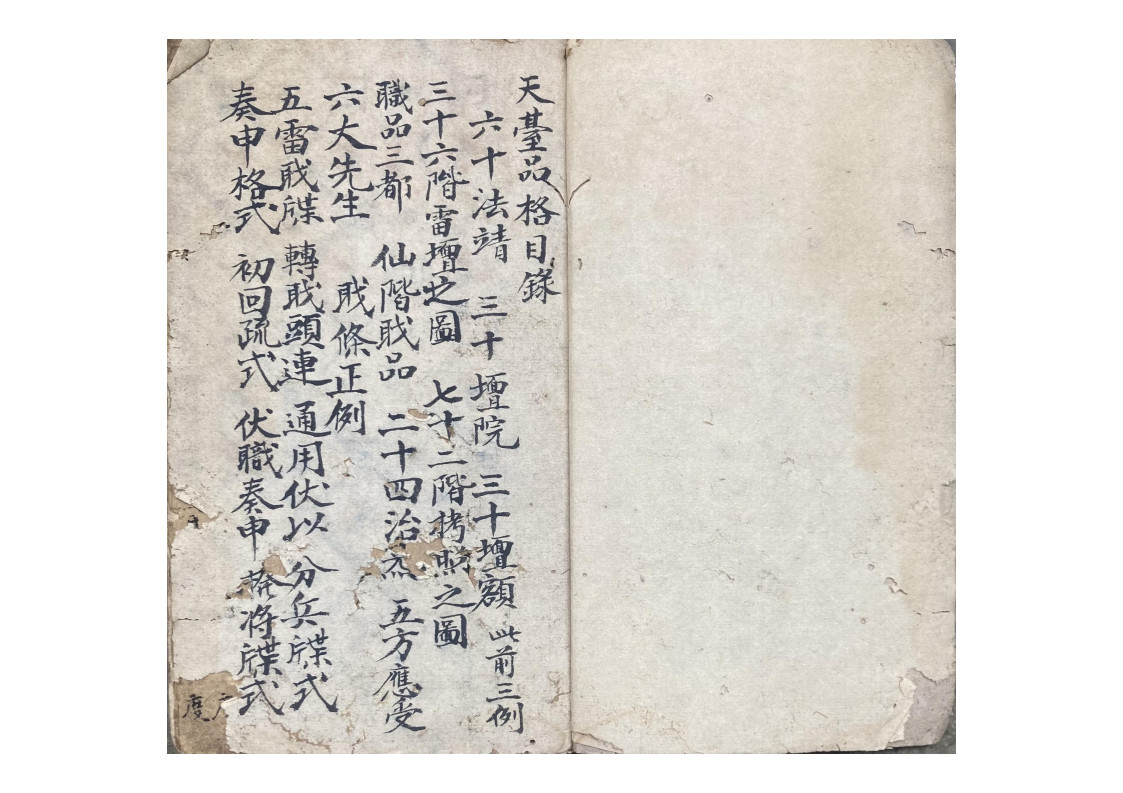 天臺品格目錄
六十法靖 三十壇院 三十壇額 此前三例
三十六階雷壇之圖 七十二階拷照之圖
職品三都 仙階戝品 二十四治炁 五方應受
六大先生 戝條正例
五雷戝牒 轉戝頭連 通用伏以 分兵牒式
奏申格式 初回疏式 伏職奏申 發将牒式
度